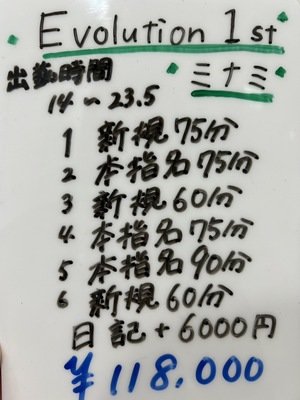 Evolution 1st
ミナミ
出勤時間
14~23.5
1 新規75分
2 本指名75分
3 新規60分
4 本指名75分
5 本指名90分
6 新規60分
日記+6000円
¥118,000